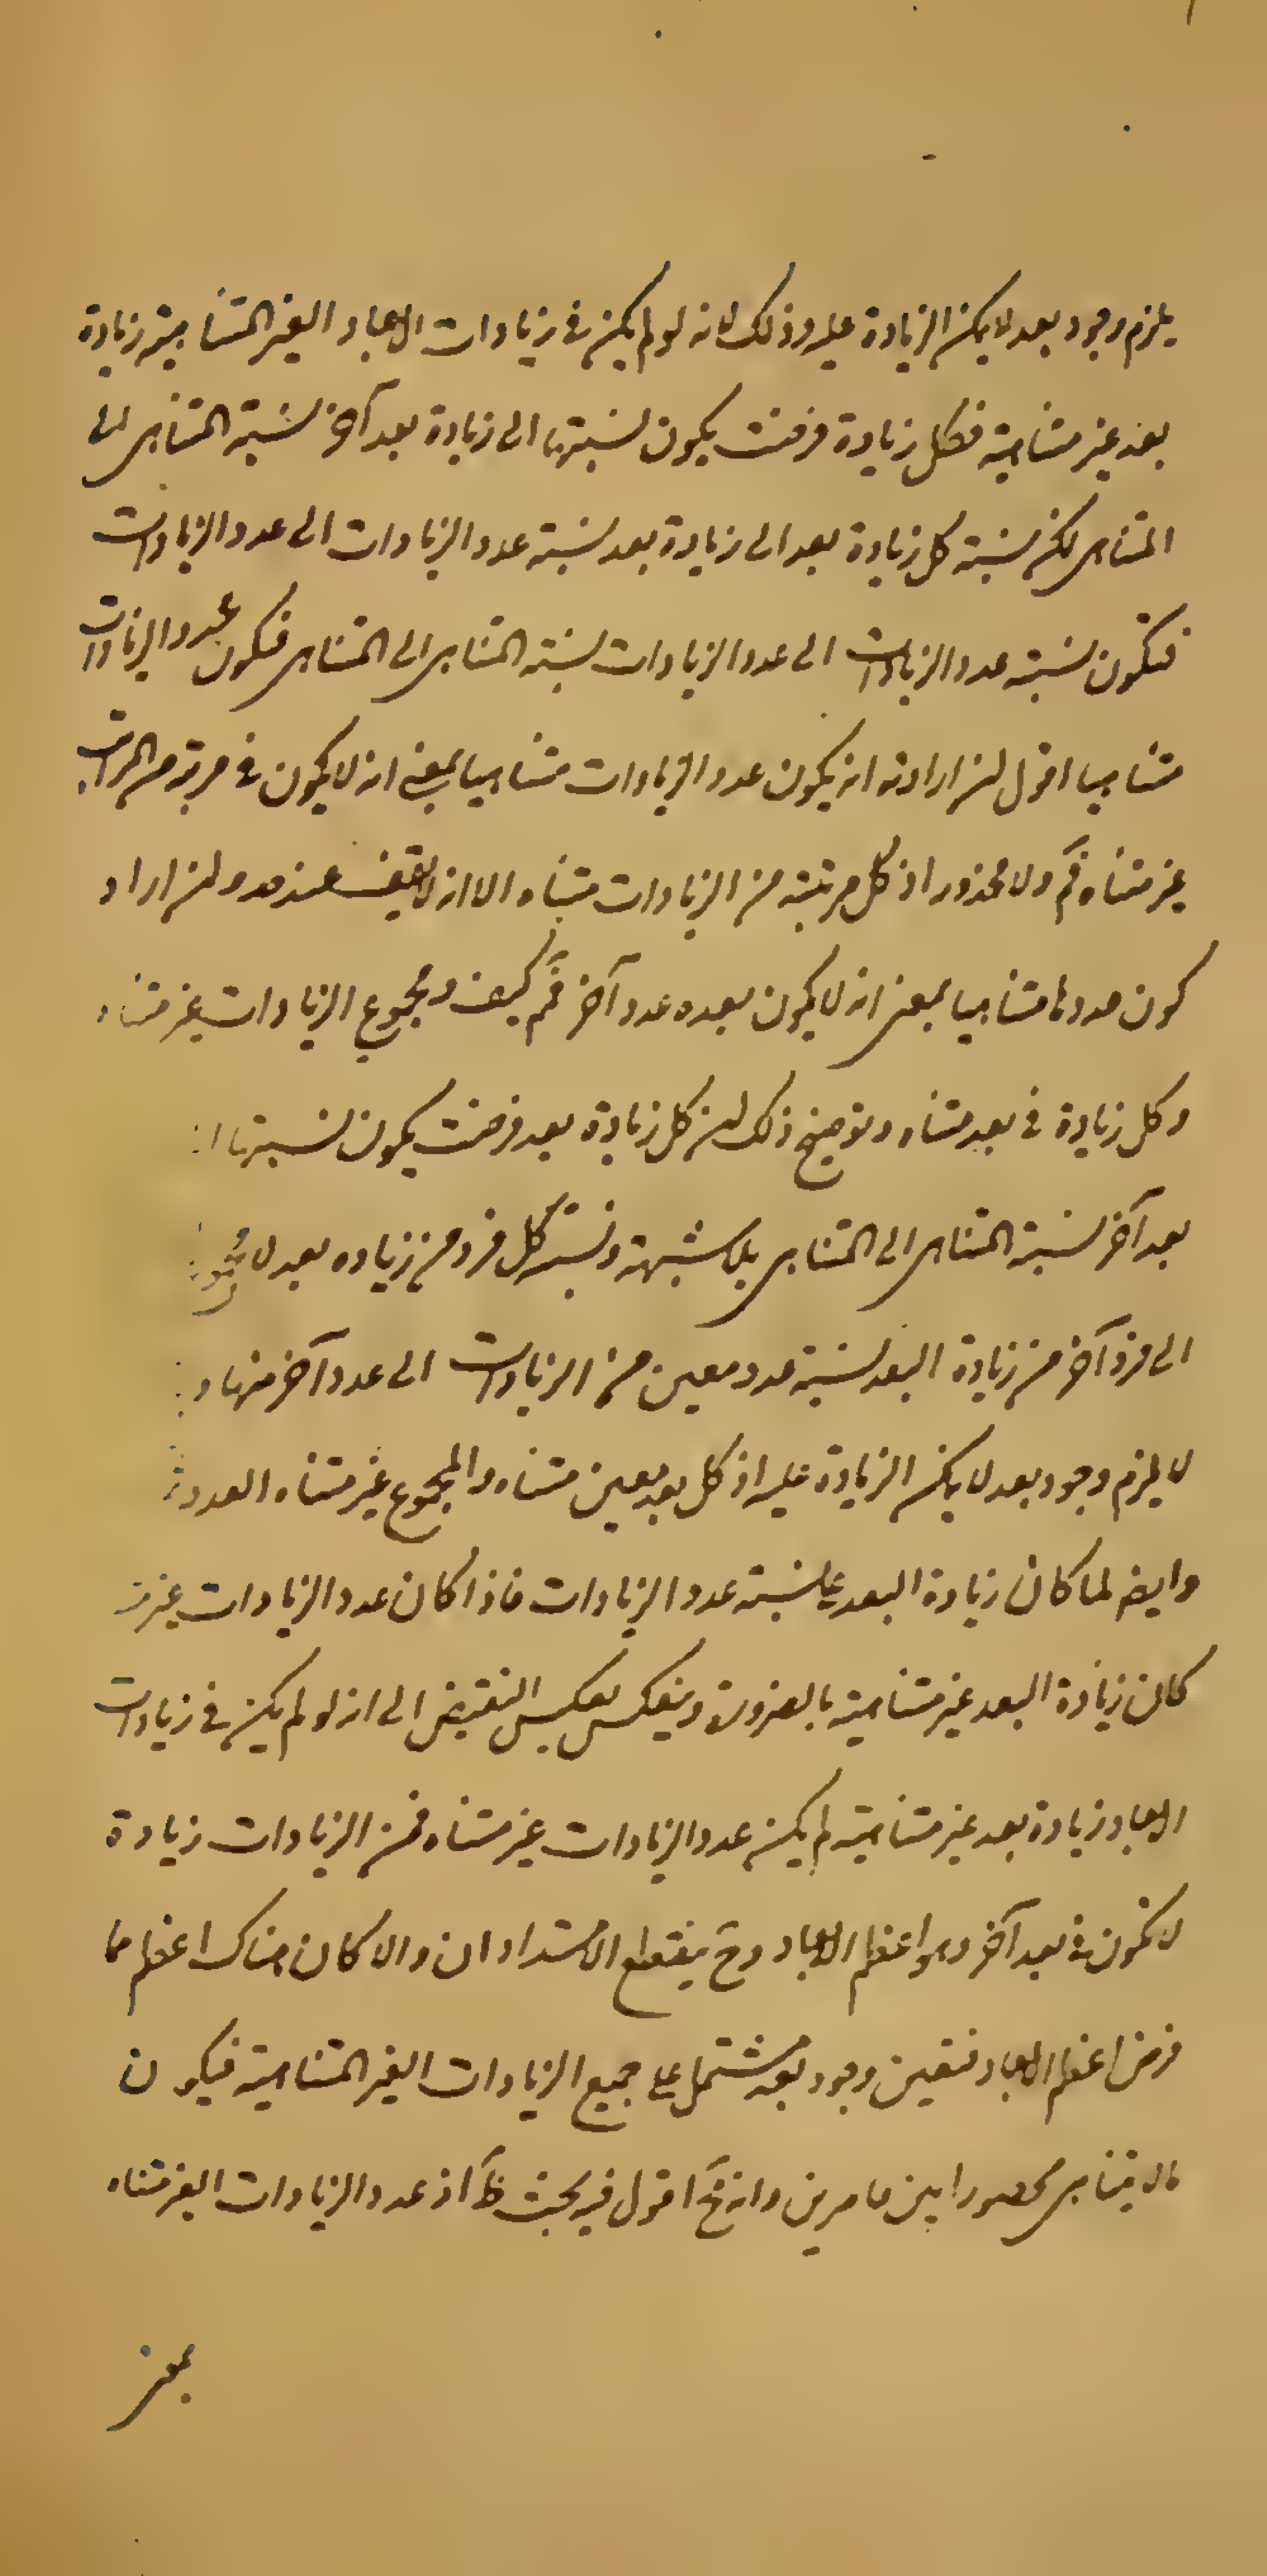 يلزم وجود بعد لا يمكن الزيادة عليه وذلك لانه لو لم يكن في زيادات الابعاد الغير المتناهية زيادة
بعد غير متناهية فكل زيادة فرضت يكون نسبتها الى زيادة بعد آخر نسبة المتناهى الى
المتناهى لكن نسبة كل زيادة بعد الى زيادة بعد نسبة عدد الزيادات الى عدد الزيادات
فتكون نسبة عدد الزيادات الى عدد الزيادات نسبة المتناهى الى المتناهى فيكون عدد الزيادات
متناهيا اقول ان اراد به ان يكون عدد الزيادات متناهيا بمعنى انه لا يكون في مرتبة من المراتب
غير متناه فم ولا محذور اذ كل مرتبة من الزيادات متناه الا انه لا يقف عند حد وان اراد
كون عددها متناهيا بمعنى انه لا يكون بعده عدد آخر فم كيف ومجموع الزيادات غير متناه
وكل زيادة في بعد متناه وتوضيح ذلك ان كل زيادة بعد فرضت يكون نسبتها
بعد آخر نسبة المتناهى الى المتناهى بلا شبهة ونسبة كل فرد من زياده بعد لا
الى فرد آخر من زيادة البعد نسبة عدد معين من الزيادات الى عدد آخر منها و
لا يلزم وجود بعد لا يمكن الزيادة عليه اذ كل بعد معين متناه والمجموع غير متناه العدد
وايضا لما كان زيادة البعد على نسبة عدد الزيادات فاذا كان عدد الزيادات غير
كان زيادة البعد غير متناهية بالضرورة وينعكس بعكس النقيض الى انه لو لم يكن في زيادات
الابعاد زيادة بعد غير متناهية لم يكن عدد الزيادات غير متناه فمن الزيادات زيادة
لا تكون في بعد آخر وهو اعظم الابعاد وح ينقطع الامتدادان والا كان هناك اعظم مما
فرض اعظم الابعاد فتعين وجود بعد مشتمل على جميع الزيادات الغير المتناهية فيكون
مالا يتناهى محصورا بين حاصرين وانه مح اقول فيه بحث ظ اذ عدد الزيادات الغير متناه
بمعنى